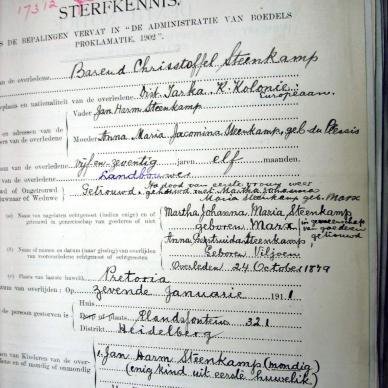 17312
STERFKENNIS.
DE BEPALINGEN VERVAT IN "DE ADMINISTRATIE VAN BOEDELS
PROKLAMATIE, 1902".
van overledene. Barend Chrisstoffel Steenkamp
plaats en nationaliteit van de overledene. Dist. Tarka, K. Kolonie
Europeaan.
en adressen van de van de overledene. Vader Jan Harm Steenkamp
Moeder Anna Maria Jacomina Steenkamp, geb. du Plessis
van overledene. Vijf en zeventig jaren elf maanden.
van de overledene. Landbouwer
of Ongetrouwd Weduwe Getrouwd, Na dood van eerste vrouw weer
gehuwd met Martha Johanna
Maria Steenkamp geb. Marx
(a) Name van nagelaten echtgenoot (indien enige) en of getrouwd in gemeenschap van goederen of niet
Martha Johanna Maria Steenkamp
geboren Marx in gemeenschap van goederen getrouwd
(b) Name of namen en datum (naar gissing) overlijden van vooroverledene echtgenoot of echtgenoten
Anna Steenkamp
Geboren Viljoen
Overleden 24 October 1879
(c) Plaats van laatste huwelik Pretoria
van overlijden: Op zevende Januarie 1911
Huis
de persoon gestorven is: Plaats Elandsfontein 321
Distrikt Heidelberg
van Kinderen van de overledene en of mondig of onmondig
1. Jan Harm Steenkamp (mondig)
(enig kind uit eerste huwelik